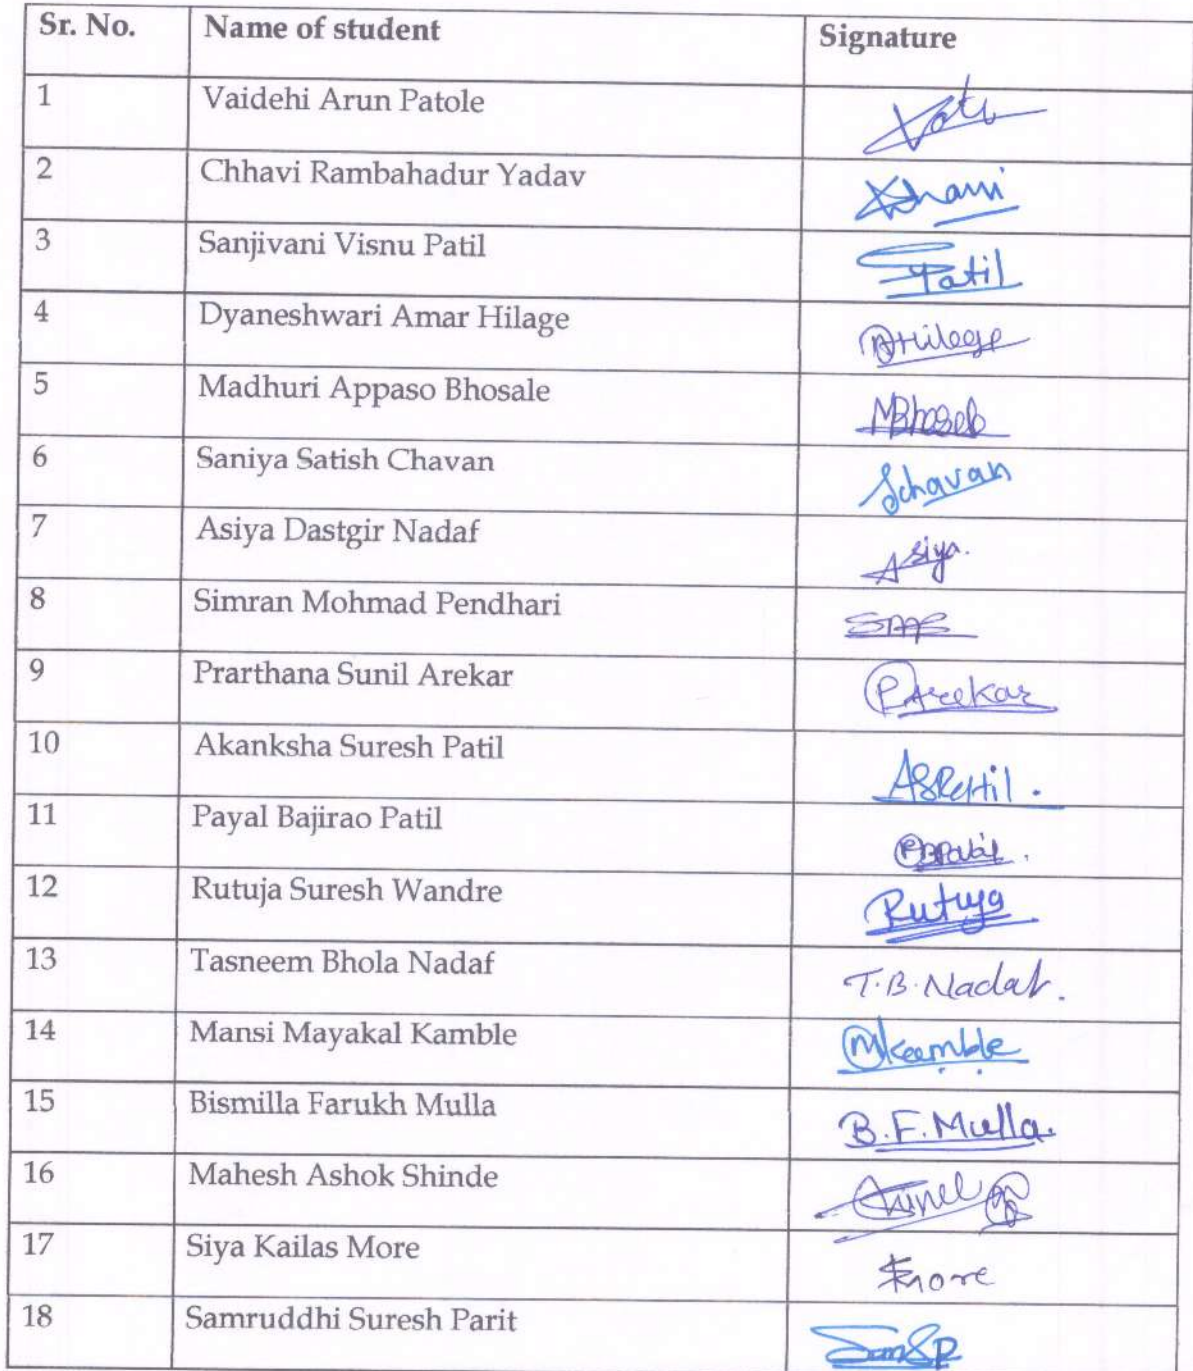 Sr. No. Name of student Signature
1 Vaidehi Arun Patole
2 Chhavi Rambahadur Yadav
3 Sanjivani Visnu Patil Patil
4 Dyaneshwari Amar Hilage
5 Madhuri Appaso Bhosale MBhosale
6 Saniya Satish Chavan Schavan
7 Asiya Dastgir Nadaf Asiya.
8 Simran Mohmad Pendhari
9 Prarthana Sunil Arekar PArekar
10 Akanksha Suresh Patil ASPatil.
11 Payal Bajirao Patil
12 Rutuja Suresh Wandre Rutuja.
13 Tasneem Bhola Nadaf T.B.Nadaf.
14 Mansi Mayakal Kamble Mkamble
15 Bismilla Farukh Mulla B.F.Mulla.
16 Mahesh Ashok Shinde
17 Siya Kailas More Smore
18 Samruddhi Suresh Parit